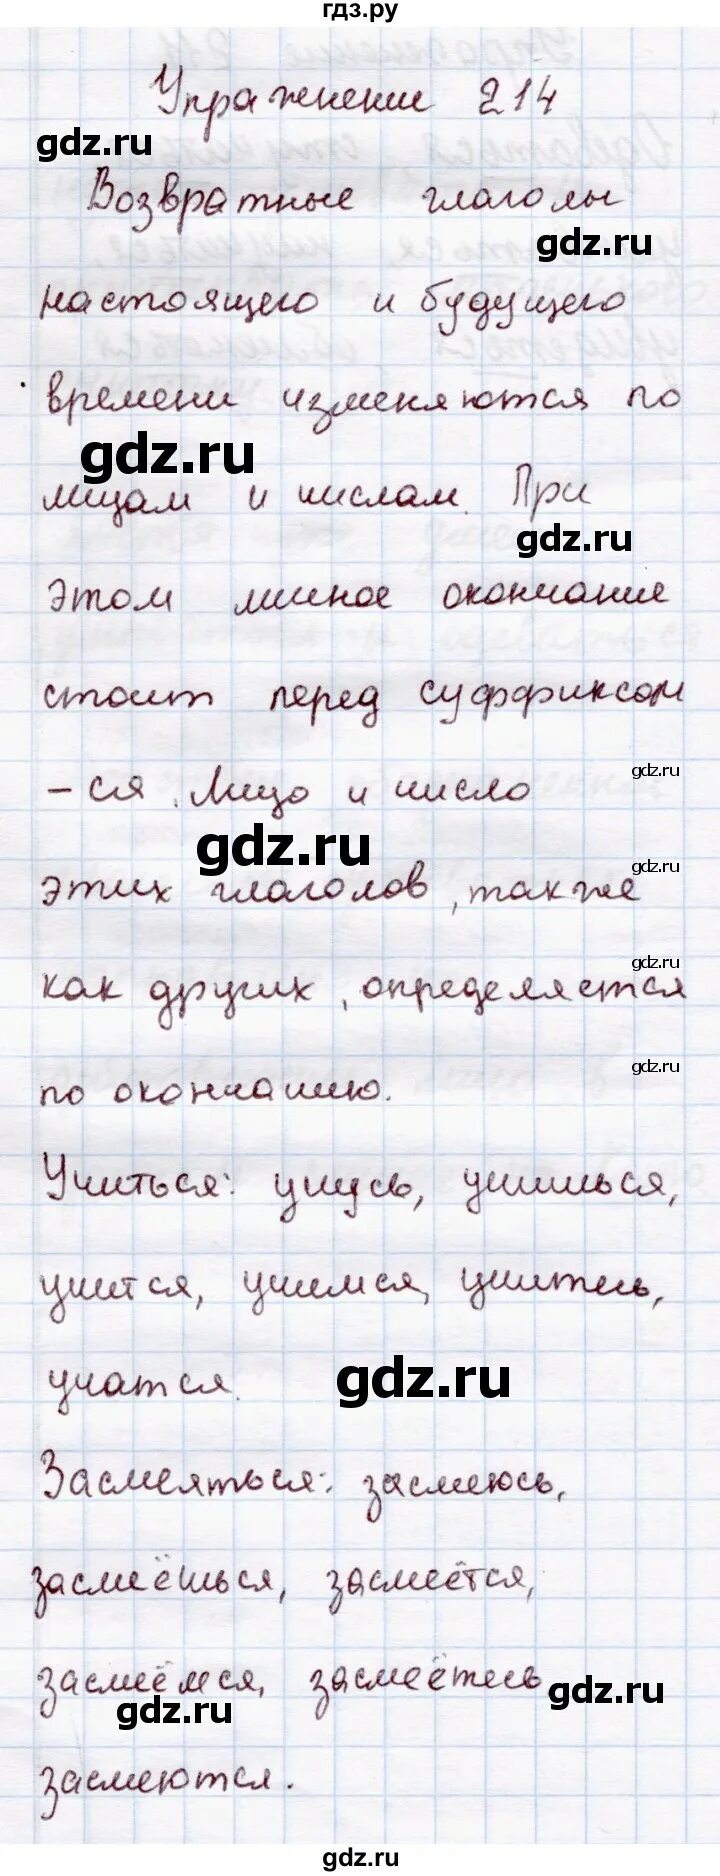 гдз.ру
Упражнение 214
gdz.ru
Возвратные глаголы
gdz.ru
настоящего и будущего
времени изменяются по
gdz.ru
лицам и числам. При
gdz.ru
этом личное окончание
стоит перед суффиксом
gdz.ru
-ся. Лицо и число
gdz.ru
gdz.ru
этих глаголов, также
gdz.ru
как других, определяется
gdz.ru
по окончанию.
Учиться: учусь, учишься,
учится, учимся, учитесь,
gdz.ru
учатся.
Засмеяться: засмеюсь,
засмеёшься, засмеётся,
засмеёмся, засмеётесь
gdz.ru
gdz.ru
засмеются.
gdz.ru